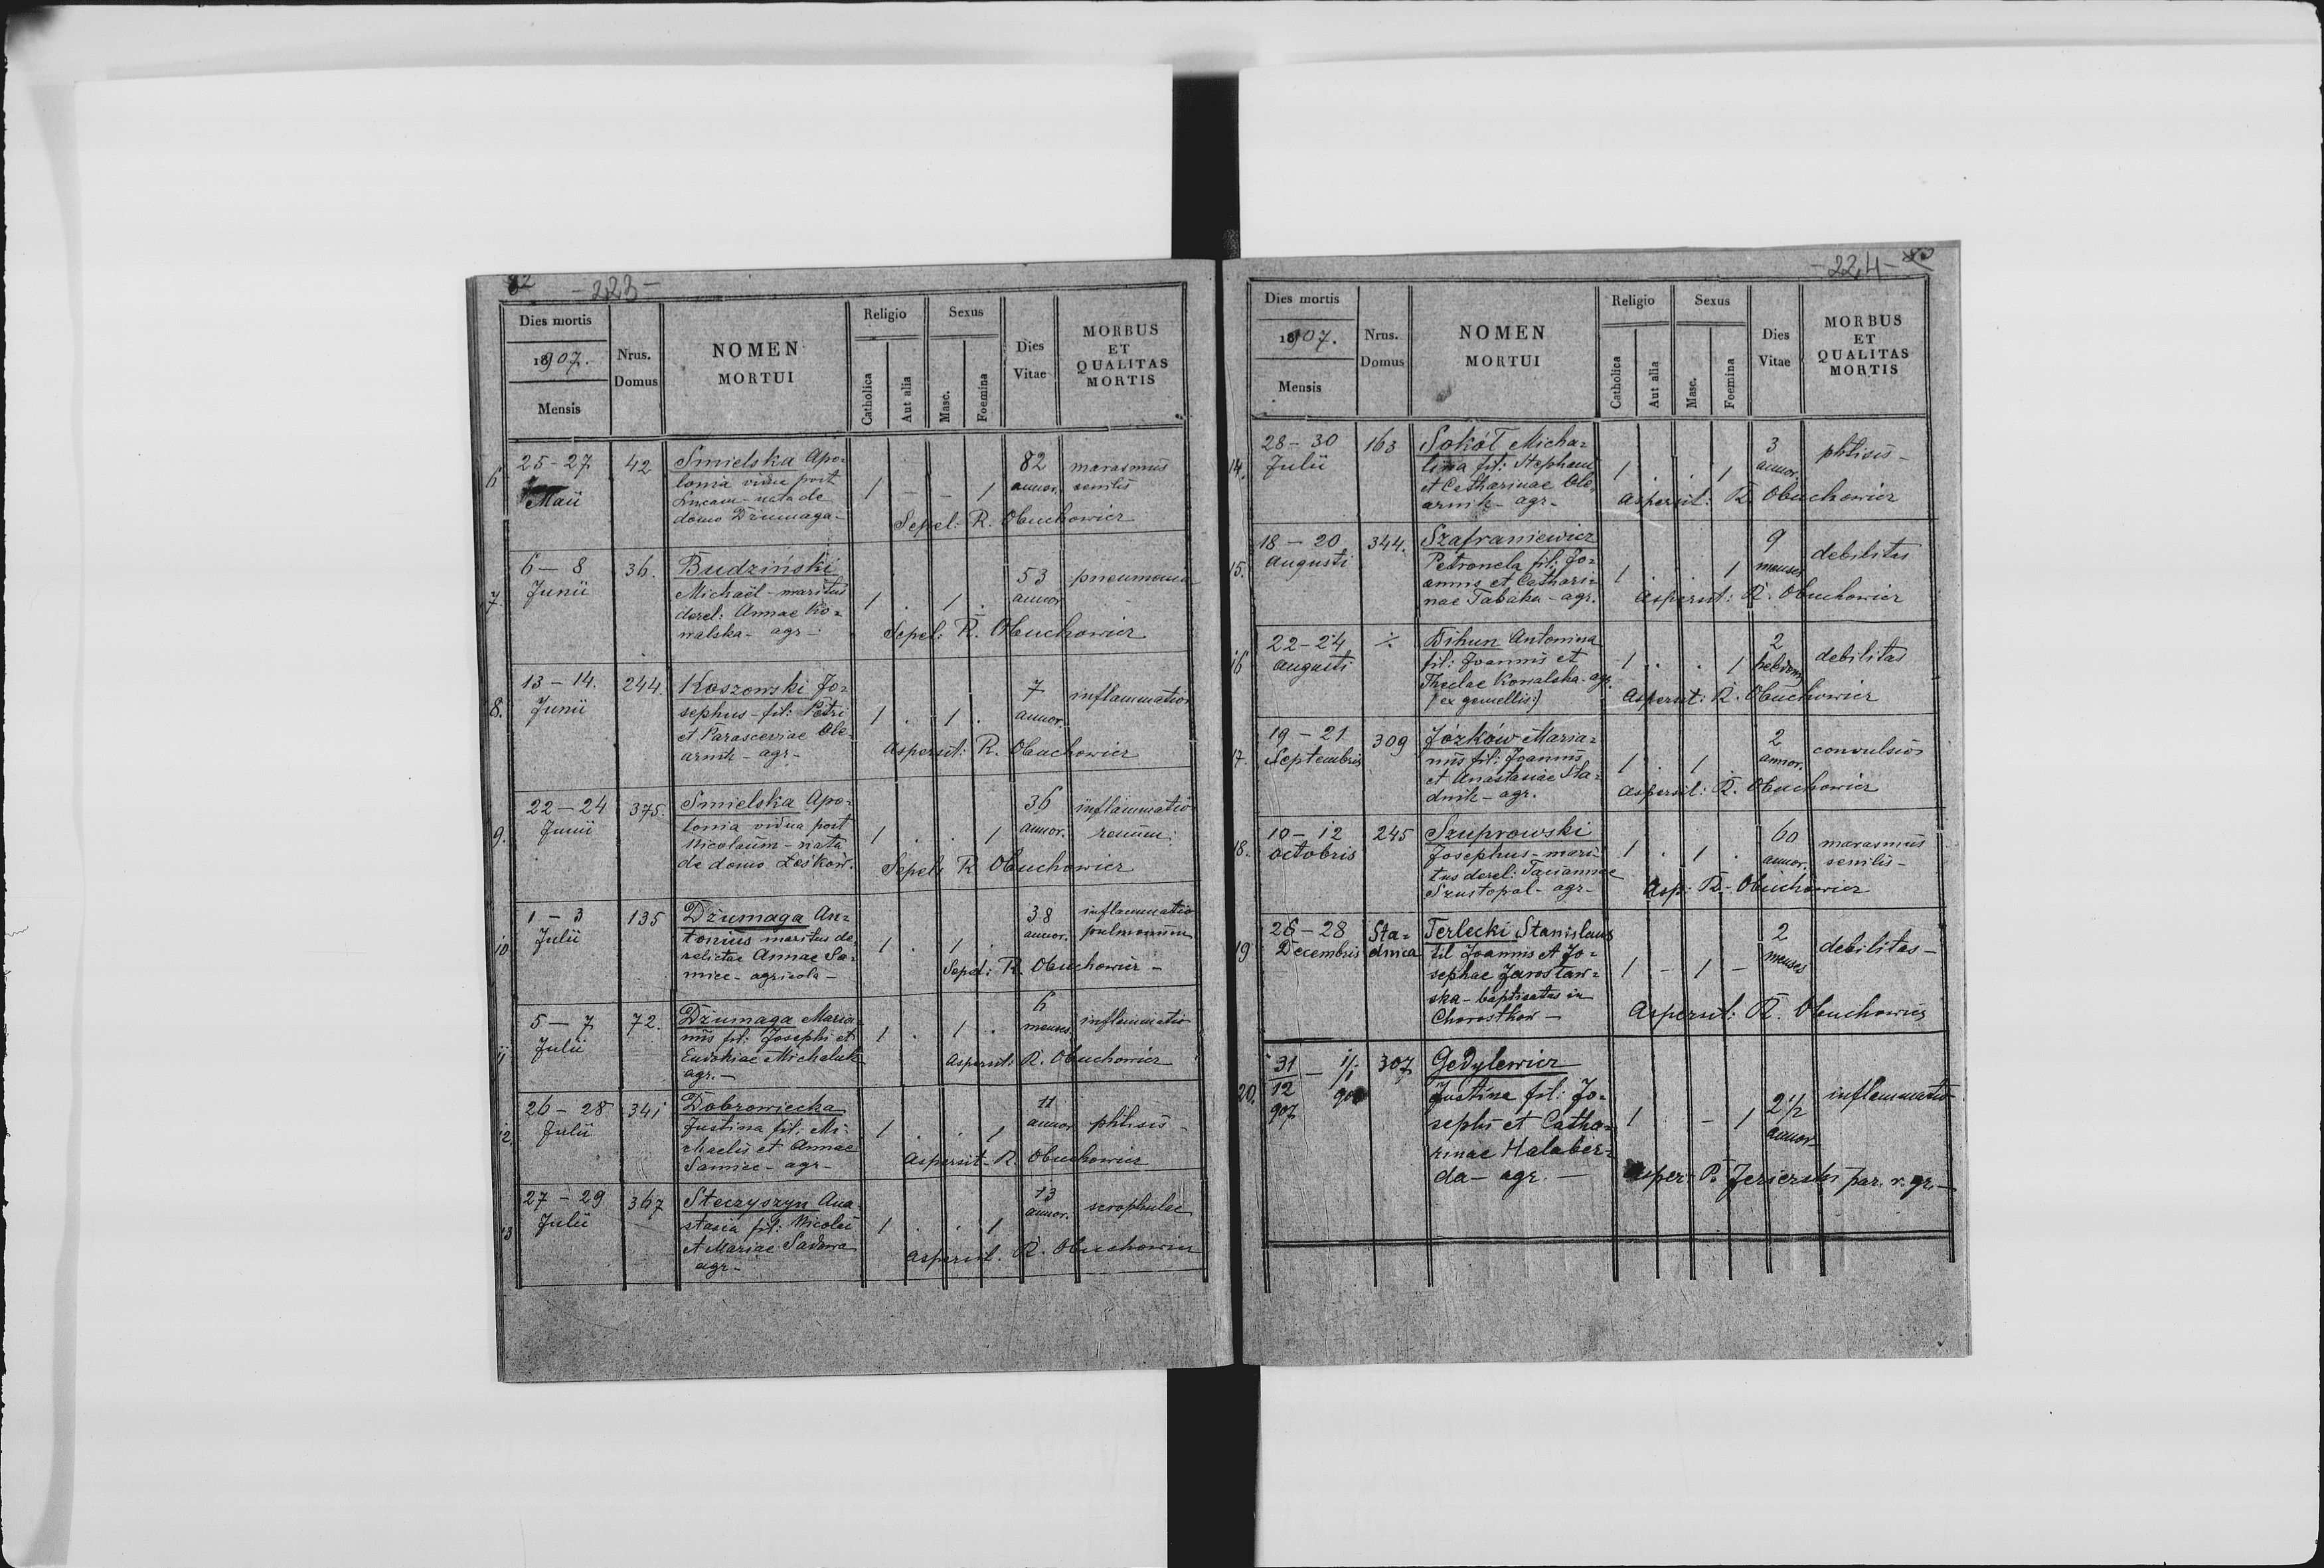 82 - 223 -
Dies mortis
1907.
Mensis
Nrus. Domus
NOMEN MORTUI
Religio
Catholica
Aut alia
Sexus
Masc.
Foemina
Dies Vitae
MORBUS ET QUALITAS MORTIS
6 25-27 42 Smielska Apo= 82 marasmus
Maii lonia vidua post annor. senilis
Lucam - nata de 1 - - 1
domo Dżumaga - Sepel: R. Obuchowicz
7. 6 - 8 36. Budziński 53 pneumonia
Junii Michaël - maritus annor
derel: Annae Ko= 1 . 1 .
walska - agr - Sepel: R. Obuchowicz
8. 13 - 14. 244. Koszowski Jo= 7 inflammatio
Junii sephus - fil: Petri 1 . 1 . annor.
et Parasceviae Ole=
arnik - agr - Aspersit: R. Obuchowicz
9. 22 - 24 375. Smielska Apo= 36 inflammatio
Junii lonia vidua post 1 . . 1 annor. renum.
Nicolaum - nata
de domo Leśków. Sepel: R Obuchowicz
10 1 - 3 135 Dżumaga An= 38 inflammatio
Julii tonius maritus de= 1 . 1 . annor. pulmonum
relictae Annae Sa=
miec - agricola - Sepel: R. Obuchowicz -
11 5 - 7 72. Dżumaga Maria= 6 inflammatio
Julii nus fil: Josephi et 1 . 1 . menses
Eudokiae Michaluk
agr. - Aspersit: R. Obuchowicz
12 26 - 28 341 Dobrowiecka 11 phtisis -
Julii Justina fil: Mi= 1 . . 1 annor
chaelis et Annae
Samiec - agr - Aspersit - R. Obuchowicz
13 27 - 29 367 Steczyszyn Ana= 13 scrophulae
Julii stasia fil: Nicolai 1 . . 1 annor.
et Mariae Sadowa
agr - Aspersit. R. Obuchowicz
- 224 -
Dies mortis
1907.
Mensis
Nrus. Domus
NOMEN MORTUI
Religio
Catholica
Aut alia
Sexus
Masc.
Foemina
Dies Vitae
MORBUS ET QUALITAS MORTIS
14. 28 - 30 163 Sokół Micha= 3 phtisis -
Julii lina fil: Stephani 1 . . 1 annor.
et Catharinae Ole=
arnik - agr - Aspersit: R. Obuchowicz
15. 18 - 20 344. Szafraniewicz 9 debilitas
Augusti Petronela fil: Jo= 1 . . 1 menses
annis et Cathari=
nae Tabaka - agr. Aspersit: R. Obuchowicz
16 22-24 ⁒ Dihun Antonina 2 debilitas
Augusti fil: Joannis et 1 . . 1 hebdom
Theclae Kowalska - agr.
(ex gemellis:) Aspersit: R. Obuchowicz
17. 19 - 21 309 Józków Maria= 2 convulsio
Septembris nus fil: Joannis 1 . 1 . annor.
et Anastasiae Sta=
dnik - agr. Aspersit: R. Obuchowicz
18. 10 - 12 245 Szuprowski 60 marasmus
Octobris Josephus - mari= 1 . 1 . annor. senilis -
tus derel: Tacianae
Szustopal - agr - Asp: R - Obuchowicz
19 26 - 28 Sta= Terlecki Stanislaus 2 debilitas -
Decembris dnica fil Joannis et Jo= menses
sephae Jarosław= 1 - 1 -
ska - baptisatus in
Chorostkow - Aspersit: R. Obuchowicz
20. 31/12 907 - 1/1 307 Gedylewicz
Justina fil: Jo= 2 1/2 inflammatio
sephi et Catha= 1 - 1 annor
rinae Halaber=
da - agr. - Asper - P. Jezierski par. r. gr. -